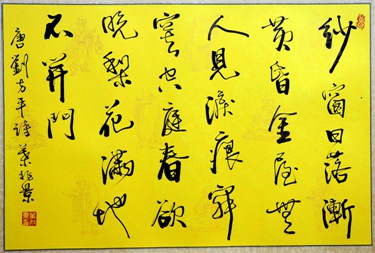 紗窗日落漸
黃昏金屋無
人見淚痕寂
寞空庭春欲
晚梨花滿地
不開門
唐劉方平詩葉兆景